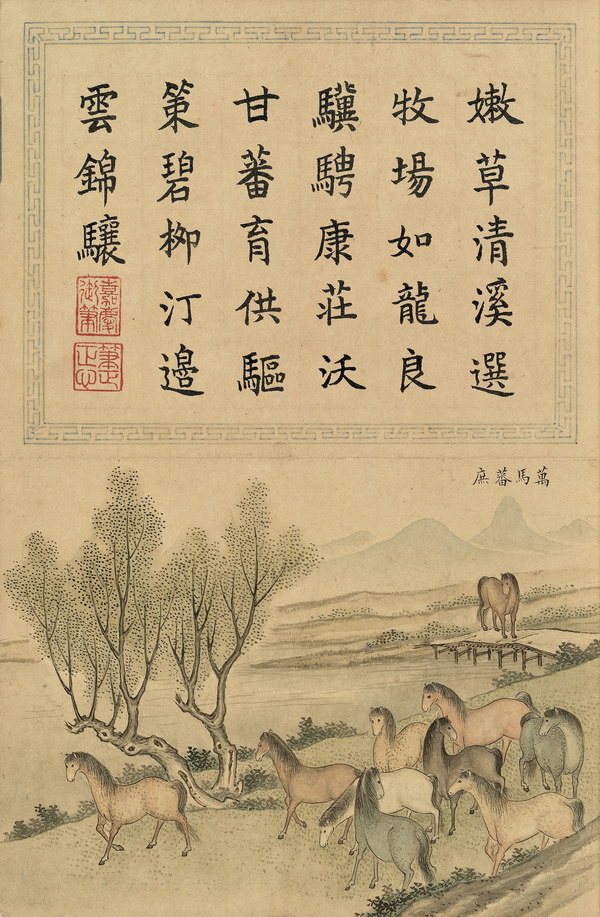 嫩草清溪選
牧場如龍良
驥騁康莊沃
甘蕃育供驅
策碧柳汀邊
雲錦驤
嘉慶御筆
萬馬蕃庶